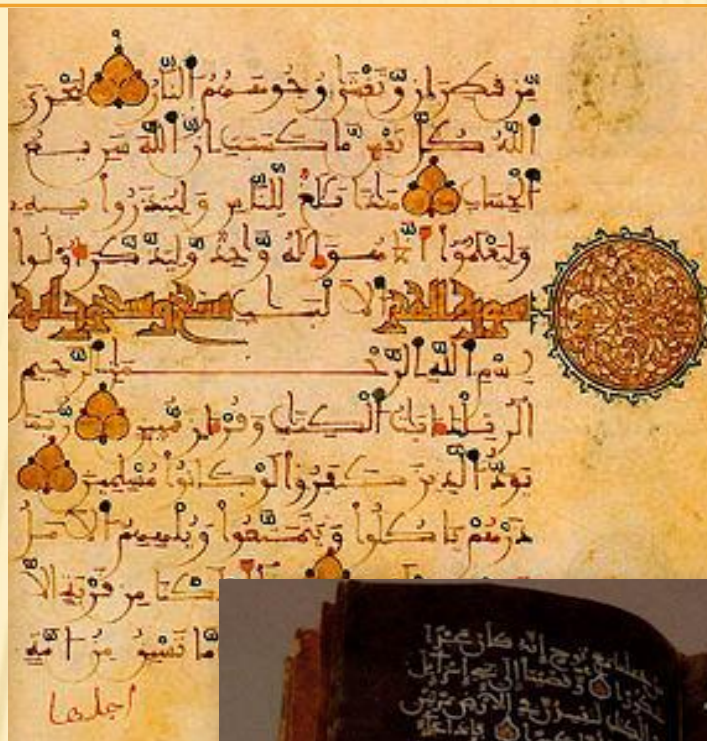 مِّن قَطِرَانٍ وَّتَغْشَىٰ وُجُوهَهُمُ النَّارُ لِيَجْزِيَ
اللَّهُ كُلَّ نَفْسٍ مَّا كَسَبَتْ إِنَّ اللَّهَ سَرِيعُ
الْحِسَابِ هَٰذَا بَلَٰغٌ لِّلنَّاسِ وَلِيُنذَرُوا بِهِ
وَلِيَعْلَمُوا أَنَّمَا هُوَ إِلَٰهٌ وَّٰحِدٌ وَّلِيَذَّكَّرَ أُولُوا
سورة الحجر الْأَلْبَٰبِ تسع وتسعون اية
بِسْمِ اللَّهِ الرَّحْمَٰنِ الرَّحِيمِ
الر تِلْكَ ءَايَٰتُ الْكِتَٰبِ وَقُرْءَانٍ مُّبِينٍ رُّبَمَا
يَوَدُّ الَّذِينَ كَفَرُوا لَوْ كَانُوا مُسْلِمِينَ
ذَرْهُمْ يَأْكُلُوا وَيَتَمَتَّعُوا وَيُلْهِهِمُ الْأَمَلُ
مِن قَرْيَةٍ إِلَّا
مَّا تَسْبِقُ مِنْ أُمَّةٍ
اجلها
إِنَّهُ كَانَ عَبْدًا
شَكُورًا وَقَضَيْنَا إِلَىٰ بَنِي إِسْرَٰءِيلَ
لَتُفْسِدُنَّ فِي الْأَرْضِ مَرَّتَيْنِ